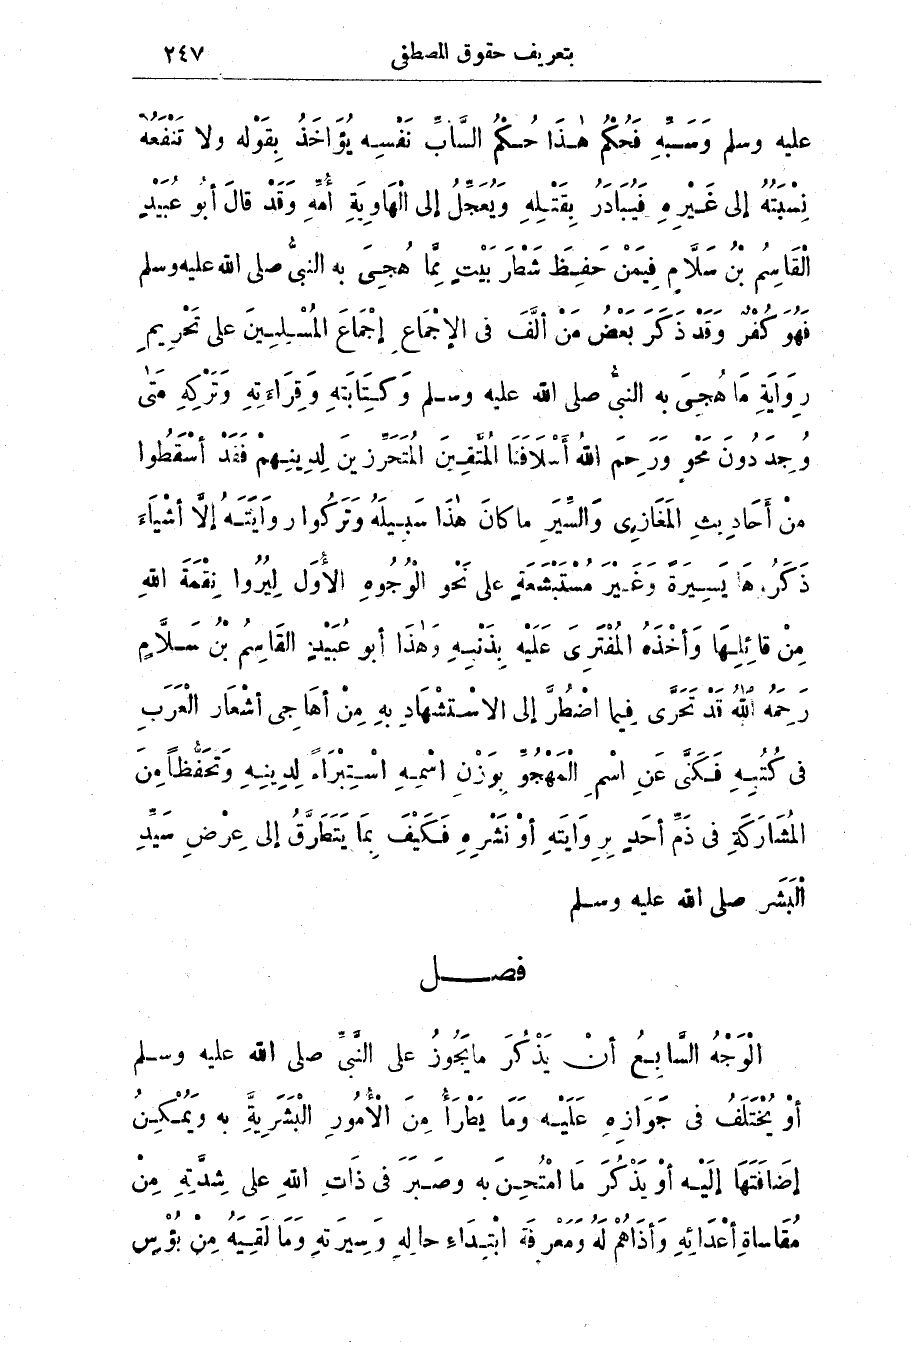 بتعريف حقوق المصطفى ٢٤٧
عليه وسلم وَسَبِّهِ فَحُكْمُ هٰذَا حُكْمُ السَّابِّ نَفْسِهِ يُؤَاخَذُ بِقَوْلِهِ ولا تَنْفَعُهُ
نِسْبَتُهُ إلى غَيْرِهِ فَيُبَادَرُ بِقَتْلِهِ وَيُعَجَّلُ إلى الْهَاوِيَةِ أُمِّهِ وَقَدْ قالَ أبُو عُبَيْدٍ
الْقَاسِمُ بْنُ سَلَّامٍ فِيمَنْ حَفِظَ شَطْرَ بَيْتٍ مِمَّا هُجِىَ به النبىُّ صلى الله عليه وسلم
فَهُوَ كُفْرٌ وَقَدْ ذَكَرَ بَعْضُ مَنْ ألَّفَ فى الإجْمَاعِ إجْمَاعَ المُسْلِمِينَ على تَحْرِيمِ
رِوَايَةِ مَا هُجِىَ به النبىُّ صلى الله عليه وسلم وَكِتَابَتِهِ وَقِرَاءَتِهِ وَتَرْكِهِ مَتٰى
وُجِدَ دُونَ مَحْوٍ وَرَحِمَ اللهُ أَسْلَافَنَا المُتَّقِينَ المُتَحَرِّزِينَ لِدِينِهِمْ فَقَدْ أسْقَطُوا
مِنْ أَحَادِيثِ المَغَازِى وَالسِّيَرِ ما كانَ هٰذَا سَبِيلَهُ وَتَرَكُوا رِوَايَتَهُ إلَّا أشْيَاءَ
ذَكَرُوهَا يَسِيرَةً وَغَيْرَ مُسْتَبْشَعَةٍ على نَحْوِ الْوُجُوهِ الأُوَلِ لِيُرُوا نِقْمَةَ اللهِ
مِنْ قائِلِهَا وَأَخْذَهُ المُفْتَرِىَ عَلَيْهِ بِذَنْبِهِ وَهٰذَا أبو عُبَيْدٍ القَاسِمُ بْنُ سَلَّامٍ
رَحِمَهُ اللهُ قَدْ تَحَرَّى فِيما اضْطُرَّ إلى الاسْتِشْهَادِ بِهِ مِنْ أهَاجِى أشْعَارِ الْعَرَبِ
فى كُتُبِهِ فَكَنَّى عَنِ اسْمِ الْمَهْجُوِّ بِوَزْنِ اسْمِهِ اسْتِبْرَاءً لِدِينِهِ وَتَحَفُّظاً مِنَ
المُشَارَكَةِ فى ذَمِّ أحَدٍ بِرِوَايَتِهِ أوْ نَشْرِهِ فَكَيْفَ بِمَا يَتَطَرَّقُ إلى عِرْضِ سَيِّدِ
الْبَشَرِ صلى الله عليه وسلم
فصل
الْوَجْهُ السَّابِعُ أنْ يَذْكُرَ ما يَجُوزُ على النَّبِىِّ صلى الله عليه وسلم
أوْ يُخْتَلَفُ فى جَوَازِهِ عَلَيْهِ وَمَا يَطْرَأُ مِنَ الْأُمُورِ الْبَشَرِيَّةِ به وَيُمْكِنُ
إضَافَتَهَا إلَيْهِ أوْ يَذْكُرَ مَا امْتُحِنَ به وصَبَرَ فى ذَاتِ اللهِ على شِدَّتِهِ مِنْ
مُقَاساةِ أعْدَائِهِ وَأذَاهُمْ لَهُ وَمَعْرِفَةِ ابْتِدَاءِ حالِهِ وَسِيرَتِهِ وَمَا لَقِيَهُ مِنْ بُؤْسِ